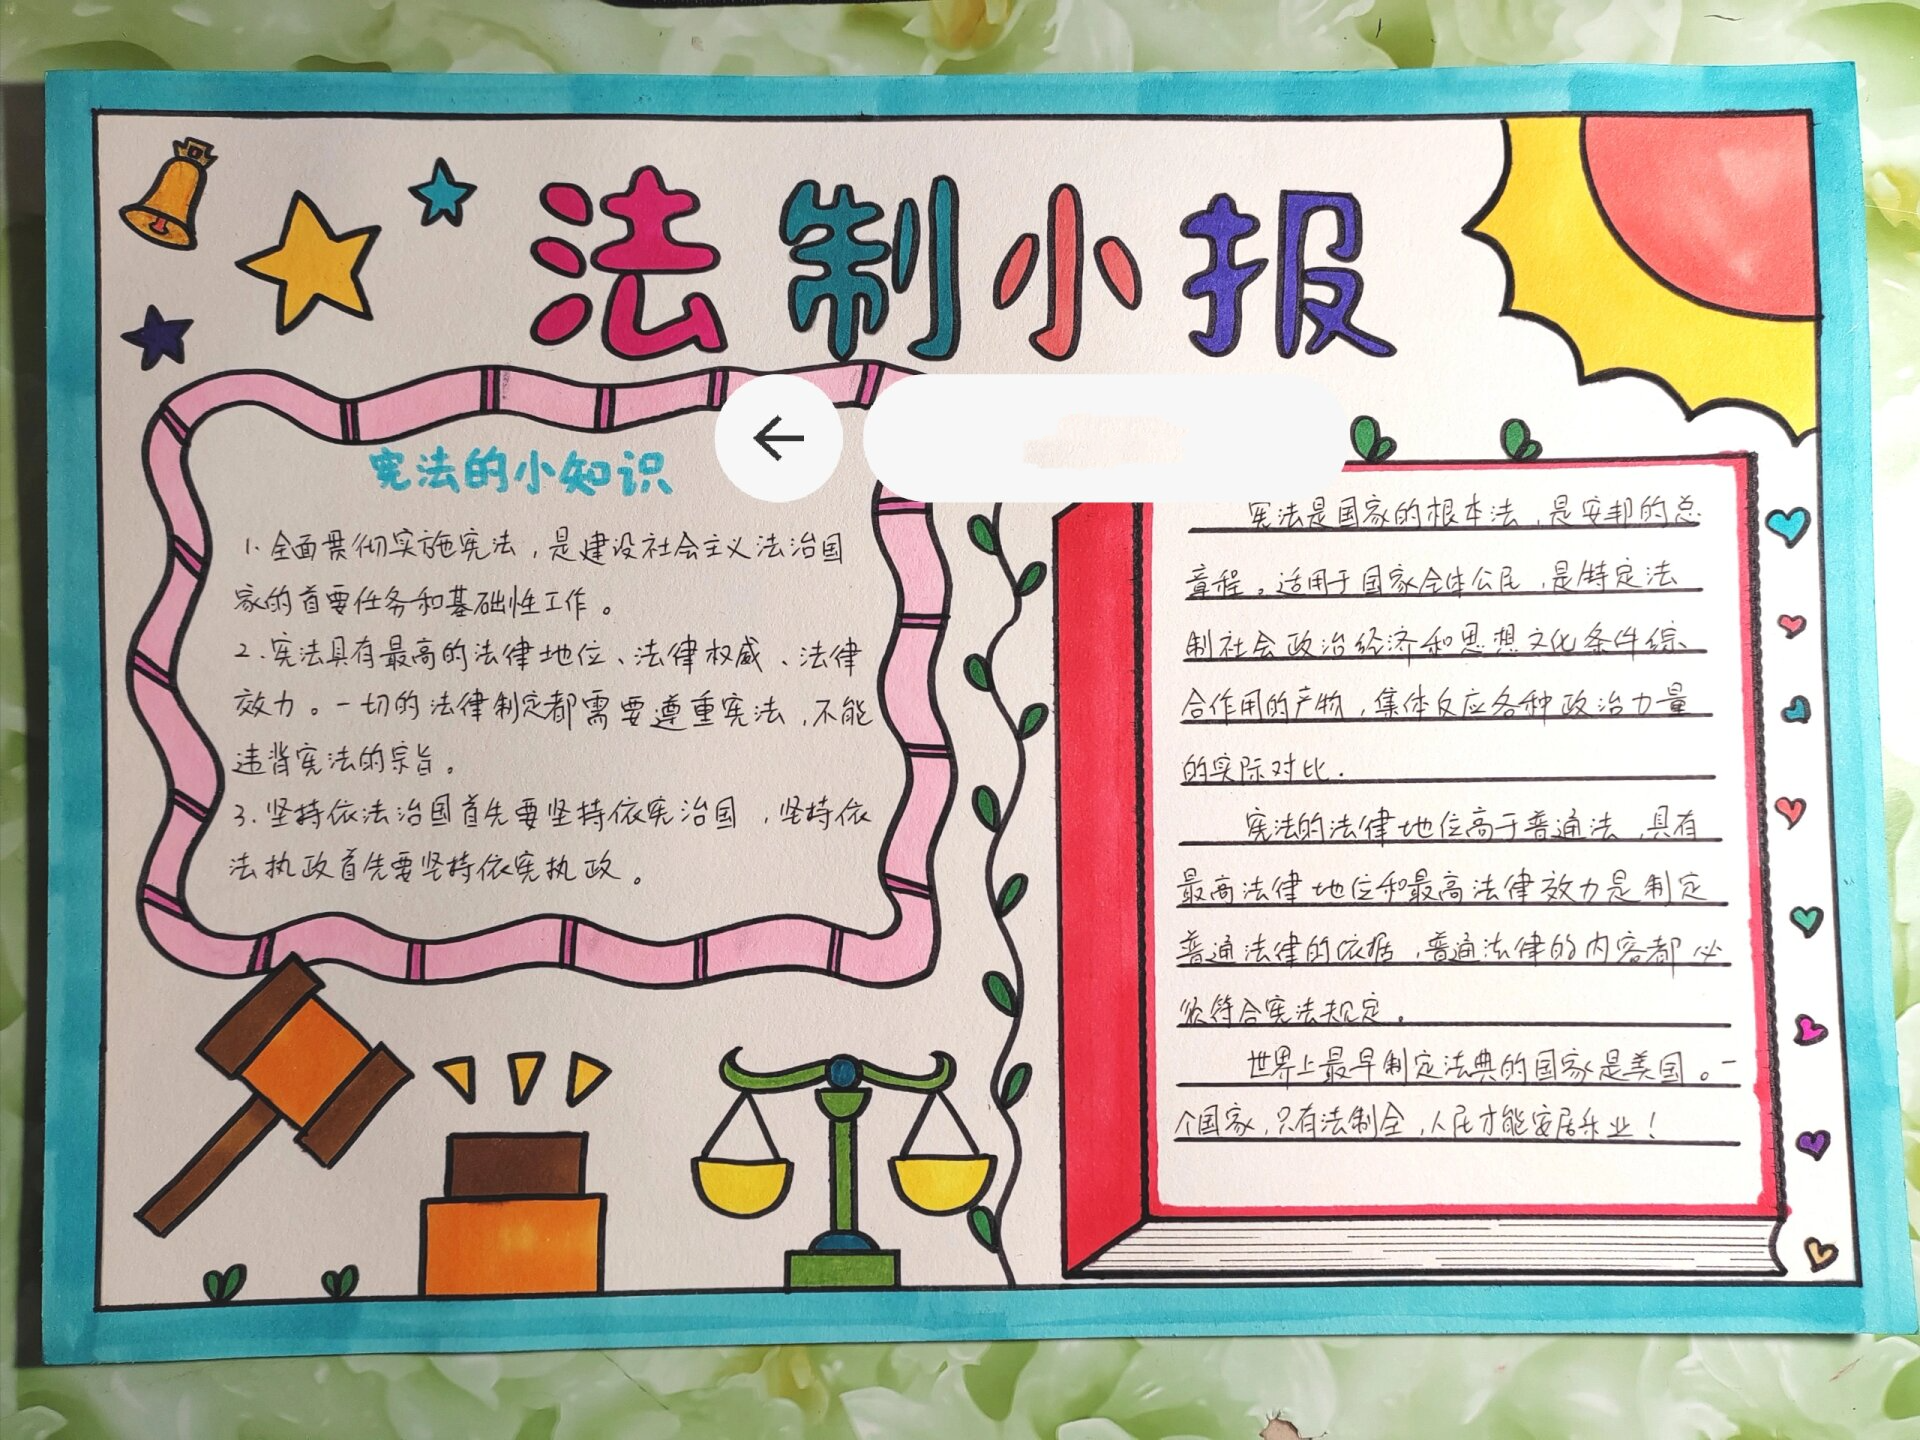 法制小报
宪法的小知识
1.全面贯彻实施宪法，是建设社会主义法治国
家的首要任务和基础性工作。
2.宪法具有最高的法律地位、法律权威、法律
效力。一切的法律制定都需要遵重宪法，不能
违背宪法的宗旨。
3.坚持依法治国首先要坚持依宪治国，坚持依
法执政首先要坚持依宪执政。
宪法是国家的根本法，是安邦的总
章程。适用于国家全体公民，是特定法
制社会政治经济和思想文化条件综
合作用的产物，集体反应各种政治力量
的实际对比.
宪法的法律地位高于普通法，具有
最高法律地位和最高法律效力是制定
普通法律的依据，普通法律的内容都必
须符合宪法规定。
世界上最早制定法典的国家是美国。一
个国家，只有法制全，人民才能安居乐业！